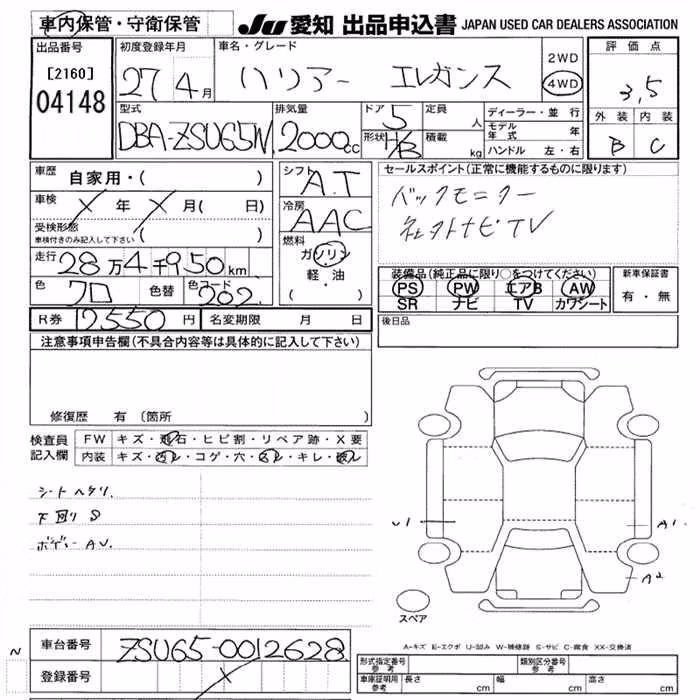 車内保管・守衛保管
JU 愛知 出品申込書 JAPAN USED CAR DEALERS ASSOCIATION
出品番号
[2160]
04148
初度登録年月
27 4月
車名・グレード
ハリアー エレガンス
2WD
4WD
評価点
3,5
外装 内装
B C
型式
DBA-ZSU65W
排気量
2000cc
ドア 5
形状 H/B
定員 人
積載 kg
ディーラー・並行
モデル年式 年
ハンドル 左・右
車歴 自家用・( )
車検 X 年 X 月( 日)
受検形態
車検付きのみ記入して下さい ( )
走行 28万4千950km
色 クロ 色替 色コード 202
シフト A.T
冷房 AAC
燃料
ガソリン
軽・油
( )
セールスポイント(正常に機能するものに限ります)
バックモニター
TV
装備品(純正品に限り○をつけてください)
PS PW エアB AW
SR ナビ TV カワシート
新車保証書
有・無
R券 12550円 名変期限 月 日
後日品
注意事項申告欄(不具合内容等は具体的に記入して下さい)
修復歴 有 (箇所 )
検査員記入欄
FW キズ・飛石・ヒビ割・リペア跡・X要
内装 キズ・汚レ・コゲ・穴・スレ・キレ・破レ
シートヘタリ.
下回りS
ボデー AV.
U1
A1
A2
スペア
A-キズ E-エクボ U-凹み W-補修跡 S-サビ C-腐食 XX-交換済
N
車台番号 ZSU65-0012628
登録番号 X
形式指定番号 参考
類別区分番号 参考
車庫証明用 参考 長さ cm 幅 cm 高さ cm